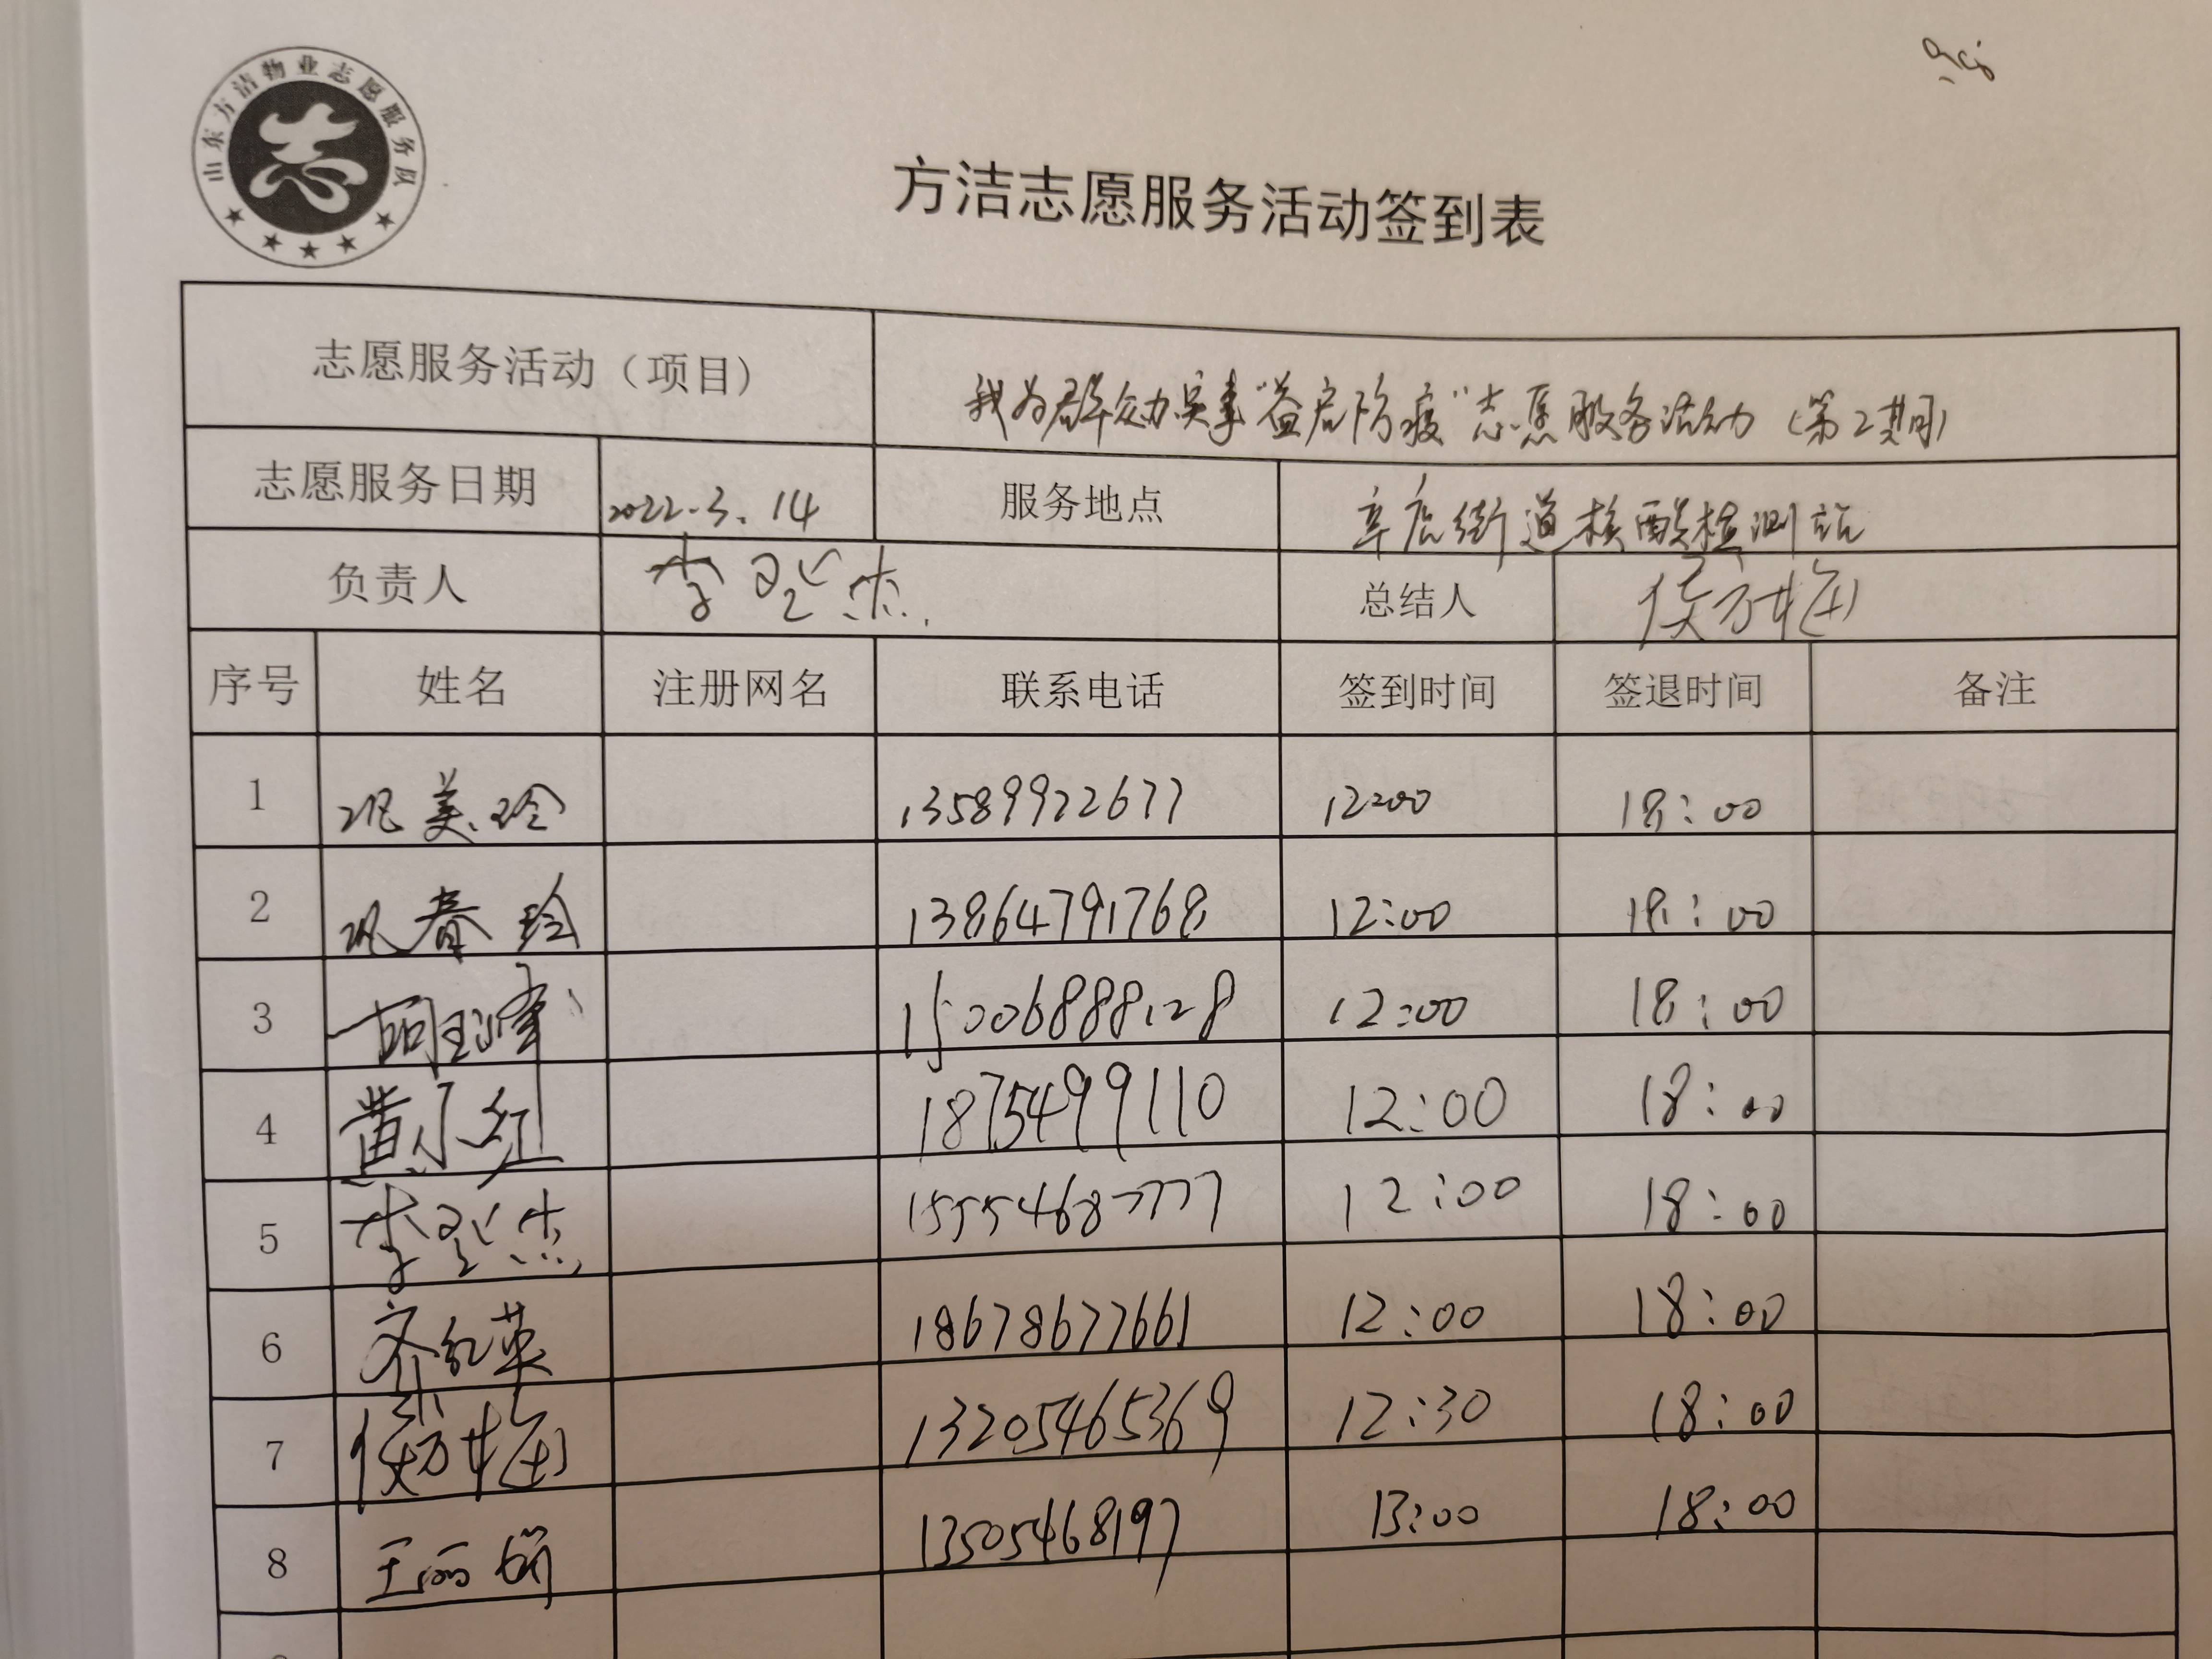 山东方洁物业志愿服务队
志
方洁志愿服务活动签到表
志愿服务活动（项目） 我为群众办实事"益启防疫"志愿服务活动（第2期）
志愿服务日期 2022.3.14 服务地点 辛店街道核酸检测站
负责人 李 杰 总结人 侯方梅
序号 姓名 注册网名 联系电话 签到时间 签退时间 备注
1 巩美玲 13589922677 12:00 18:00
2 巩春玲 13864791768 12:00 18:00
3 胡 15006888128 12:00 18:00
4 黄小红 1875499110 12:00 18:00
5 李 杰 15554687777 12:00 18:00
6 齐红英 18678677661 12:00 18:00
7 侯方梅 13205465369 12:30 18:00
8 王丽娟 13505468197 13:00 18:00